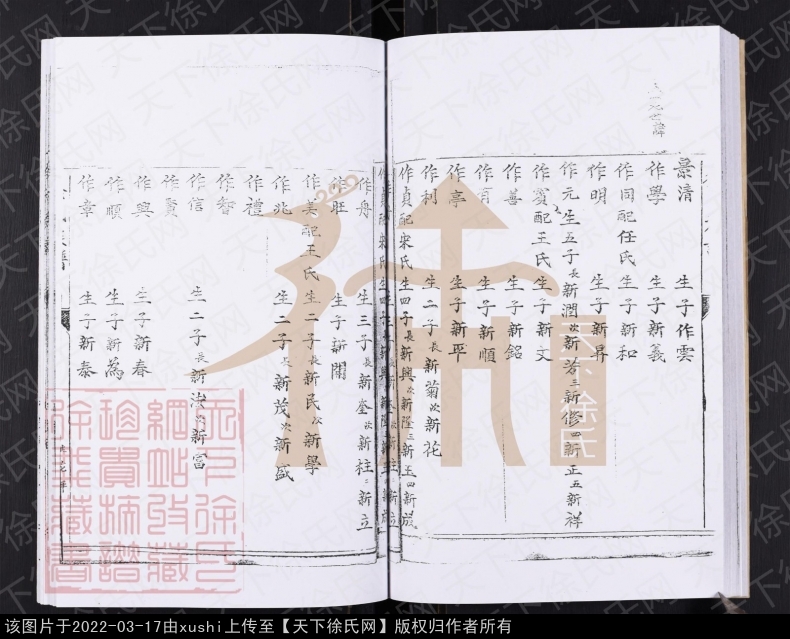 景清 生子作雲
作學 生子新義
作同配任氏 生子新和
作明 生子新昇
作元生五子長新潤次新芳三新修四新正五新祥
作賓配王氏 生子新文
作善 生子新銘
作有 生子新順
作亭 生子新平
作利 生二子長新菊次新花
作貞配宋氏生四子長新興次新隆三新玉四新成
作舟 生三子長新奎次新柱三新立
作旺 生子新開
作美配王氏生二子長新民次新學
作兆 生二子長新茂次新盛
作禮
作智
作信 生二子長新法次新富
作賢
作興 生子新春
作順 生子新為
作章 生子新泰
天下徐氏
網站收藏
珍貴捐譜
徐氏藏書
天下徐氏
天下徐氏网
该图片于2022-03-17由xushi上传至【天下徐氏网】版权归作者所有